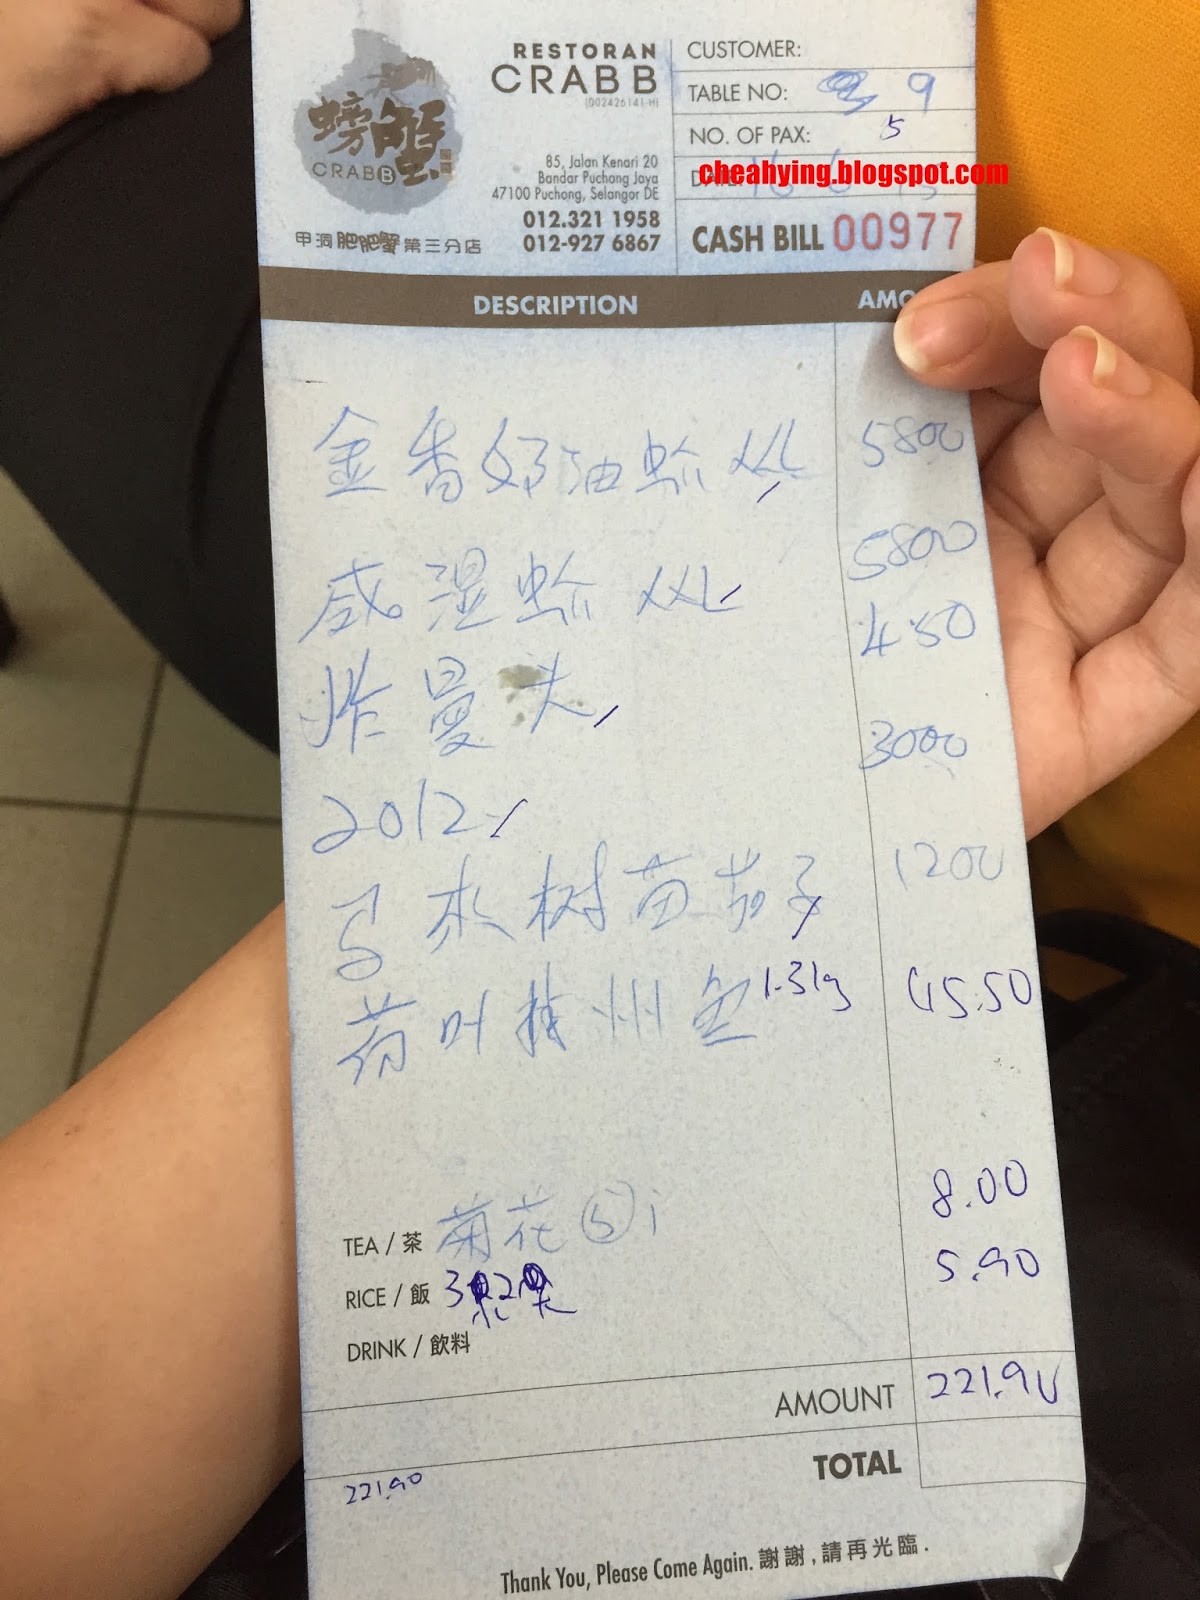 螃蟹
CRAB B
甲洞肥肥蟹第三分店
RESTORAN
CRAB B
(002426141-H)
85, Jalan Kenari 20
Bandar Puchong Jaya
47100 Puchong, Selangor DE
012.321 1958
012-927 6867
CUSTOMER:
TABLE NO: 9
NO. OF PAX: 5
cheahying.blogspot.com
CASH BILL 00977
DESCRIPTION AMO
金香奶油虾 5800
咸湿虾 5800
炸曼夫 4.50
2012 3000
马来树苗茄子 1200
荷叶 州 1.31g 45.50
TEA / 茶 菊花 ⑤ 8.00
RICE / 飯 3 2 5.90
DRINK / 飲料
AMOUNT 221.90
TOTAL
221.90
Thank You, Please Come Again. 謝謝,請再光臨.